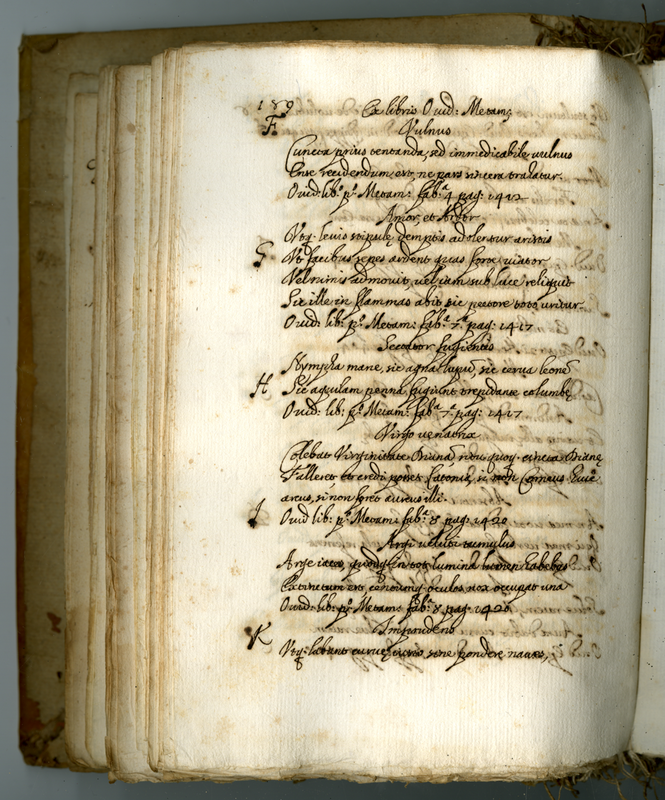 189 Ex libris Ovid: Metam:
F. Vulnus
Cuncta prius tentanda, sed immedicabile vulnus
Ense recidendum est, ne pars sincera trahatur.
Ovid: lib.º p.º Metam: fab.ª 4 pag: 1412
Amor, et Ardor
Utq. levis stipulę demptis adolentur aristis
G Ut facibus sepes ardent quas forte viator
Vel nimis admovit, vel iam sub luce reliquit
Sic ille in flammas abit sic pectore toto uritur
Ovid: lib: p.º Metam: fab.ª 7.ª pag: 1417
Sectator fugientis
Nympha mane, sic agna lupū, sic cerva leonē
H Sic aquilam penna fugiunt trepidante columbę
Ovid: lib: p.º Metam: fab.ª 7.ª pag: 1417
Virgo venatrix
Colebat Virginitate Dianā, ritu quoq. cincta Dianę
Falleret, et credi posset Latonia, si non Corneus huic
arcus, si non foret aureus illi.
I Ovid lib: p.º Metam: fab.ª 8 pag: 1420
Argi veluti tumulus
Arge iaces, quodq. in tot lumina lumen habebas
Extinctum est, centumq. oculos nox occupat una
Ovid: lib: p.º Metam: fab.ª 8 pag: 1420
K Imprudens
Utq. labant curvę iusto sine pondere naves,